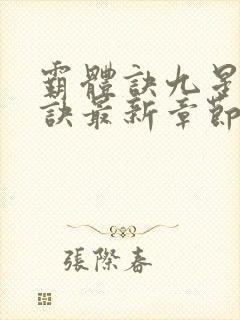 霸體訣九星
訣最新章節
張際春